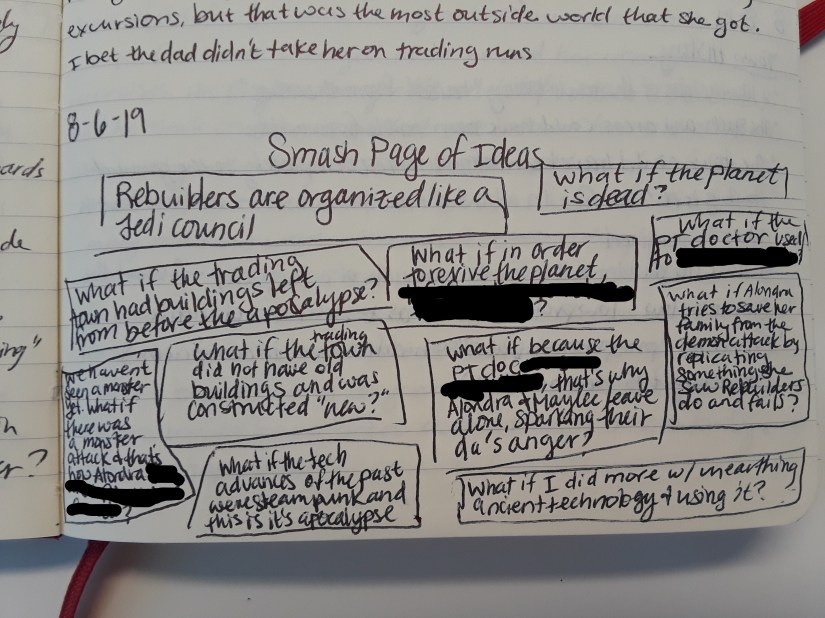 excursions, but that was the most outside world that she got.
I bet the dad didn't take her on trading runs
8-6-19
Smash Page of Ideas
Rebuilders are organized like a
Jedi council
what if the planet
is dead?
What if the
PT doctor used
to
What if the trading
town had buildings left
from before the apocalypse?
What if in order
to revive the planet,
?
what if Alondra
tries to save her
family from the
demon attack by
replicating
something she
saw Rebuilders
do and fails?
we haven't
seen a monster
yet. What if
there was
a monster
attack & that's
how Alondra
?
What if the trading town
did not have old
buildings and was
constructed "new?"
what if because the
PT doc
, that's why
Alondra & Maylee leave
alone, sparking their
da's anger?
what if the tech
advances of the past
were steampunk and
this is it's apocalypse
What if I did more w/ unearthing
ancient technology & using it?
ards
de
ing"
er?